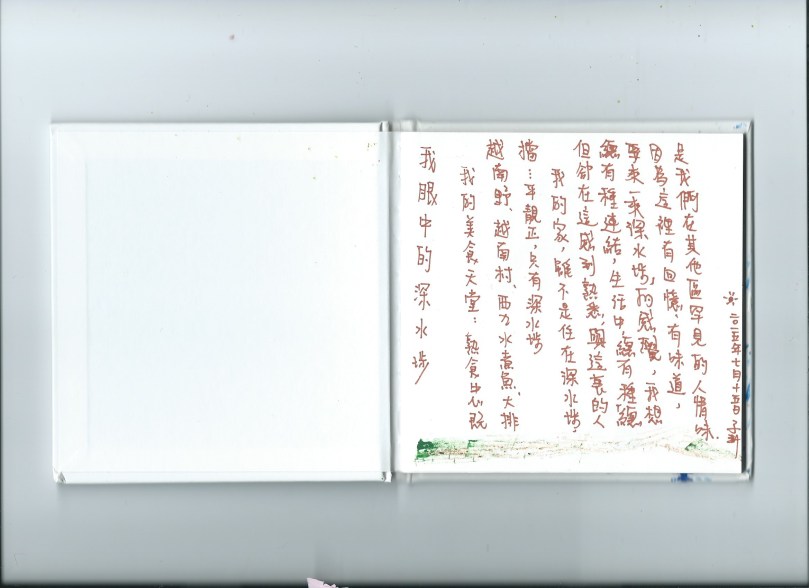 我眼中的深水埗
我的美食天堂：熱食中心既
越南野、越南村、西刀水煮魚、大排
擋…平靚正，只有深水埗
我的家，雖不是住在深水埗，
但卻在這感到熟悉，與這裏的人
總有種連結，生活中，總有種總
要來一來深水埗，的感覺，我想
因為這裡有回憶，有味道，
是我們在其他區罕見的人情味.
二〇一五年七月十五日